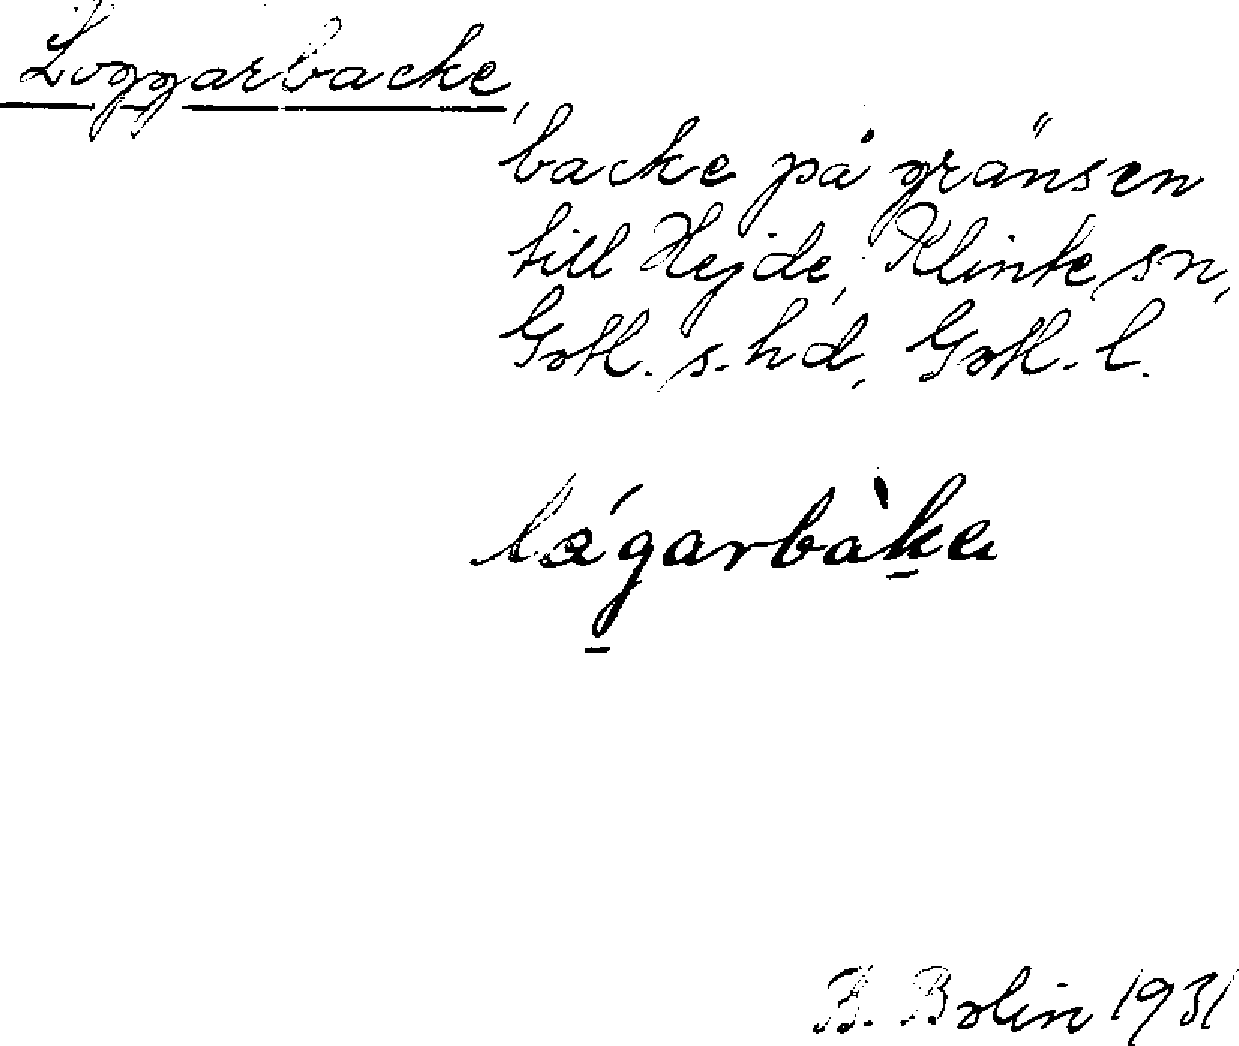 Loggarbacke,
backe på gränsen
till Hejde, Klinte sn,
Gotl. s. hd, Gotl. l.
lågarbàke
B. Bolin 1931